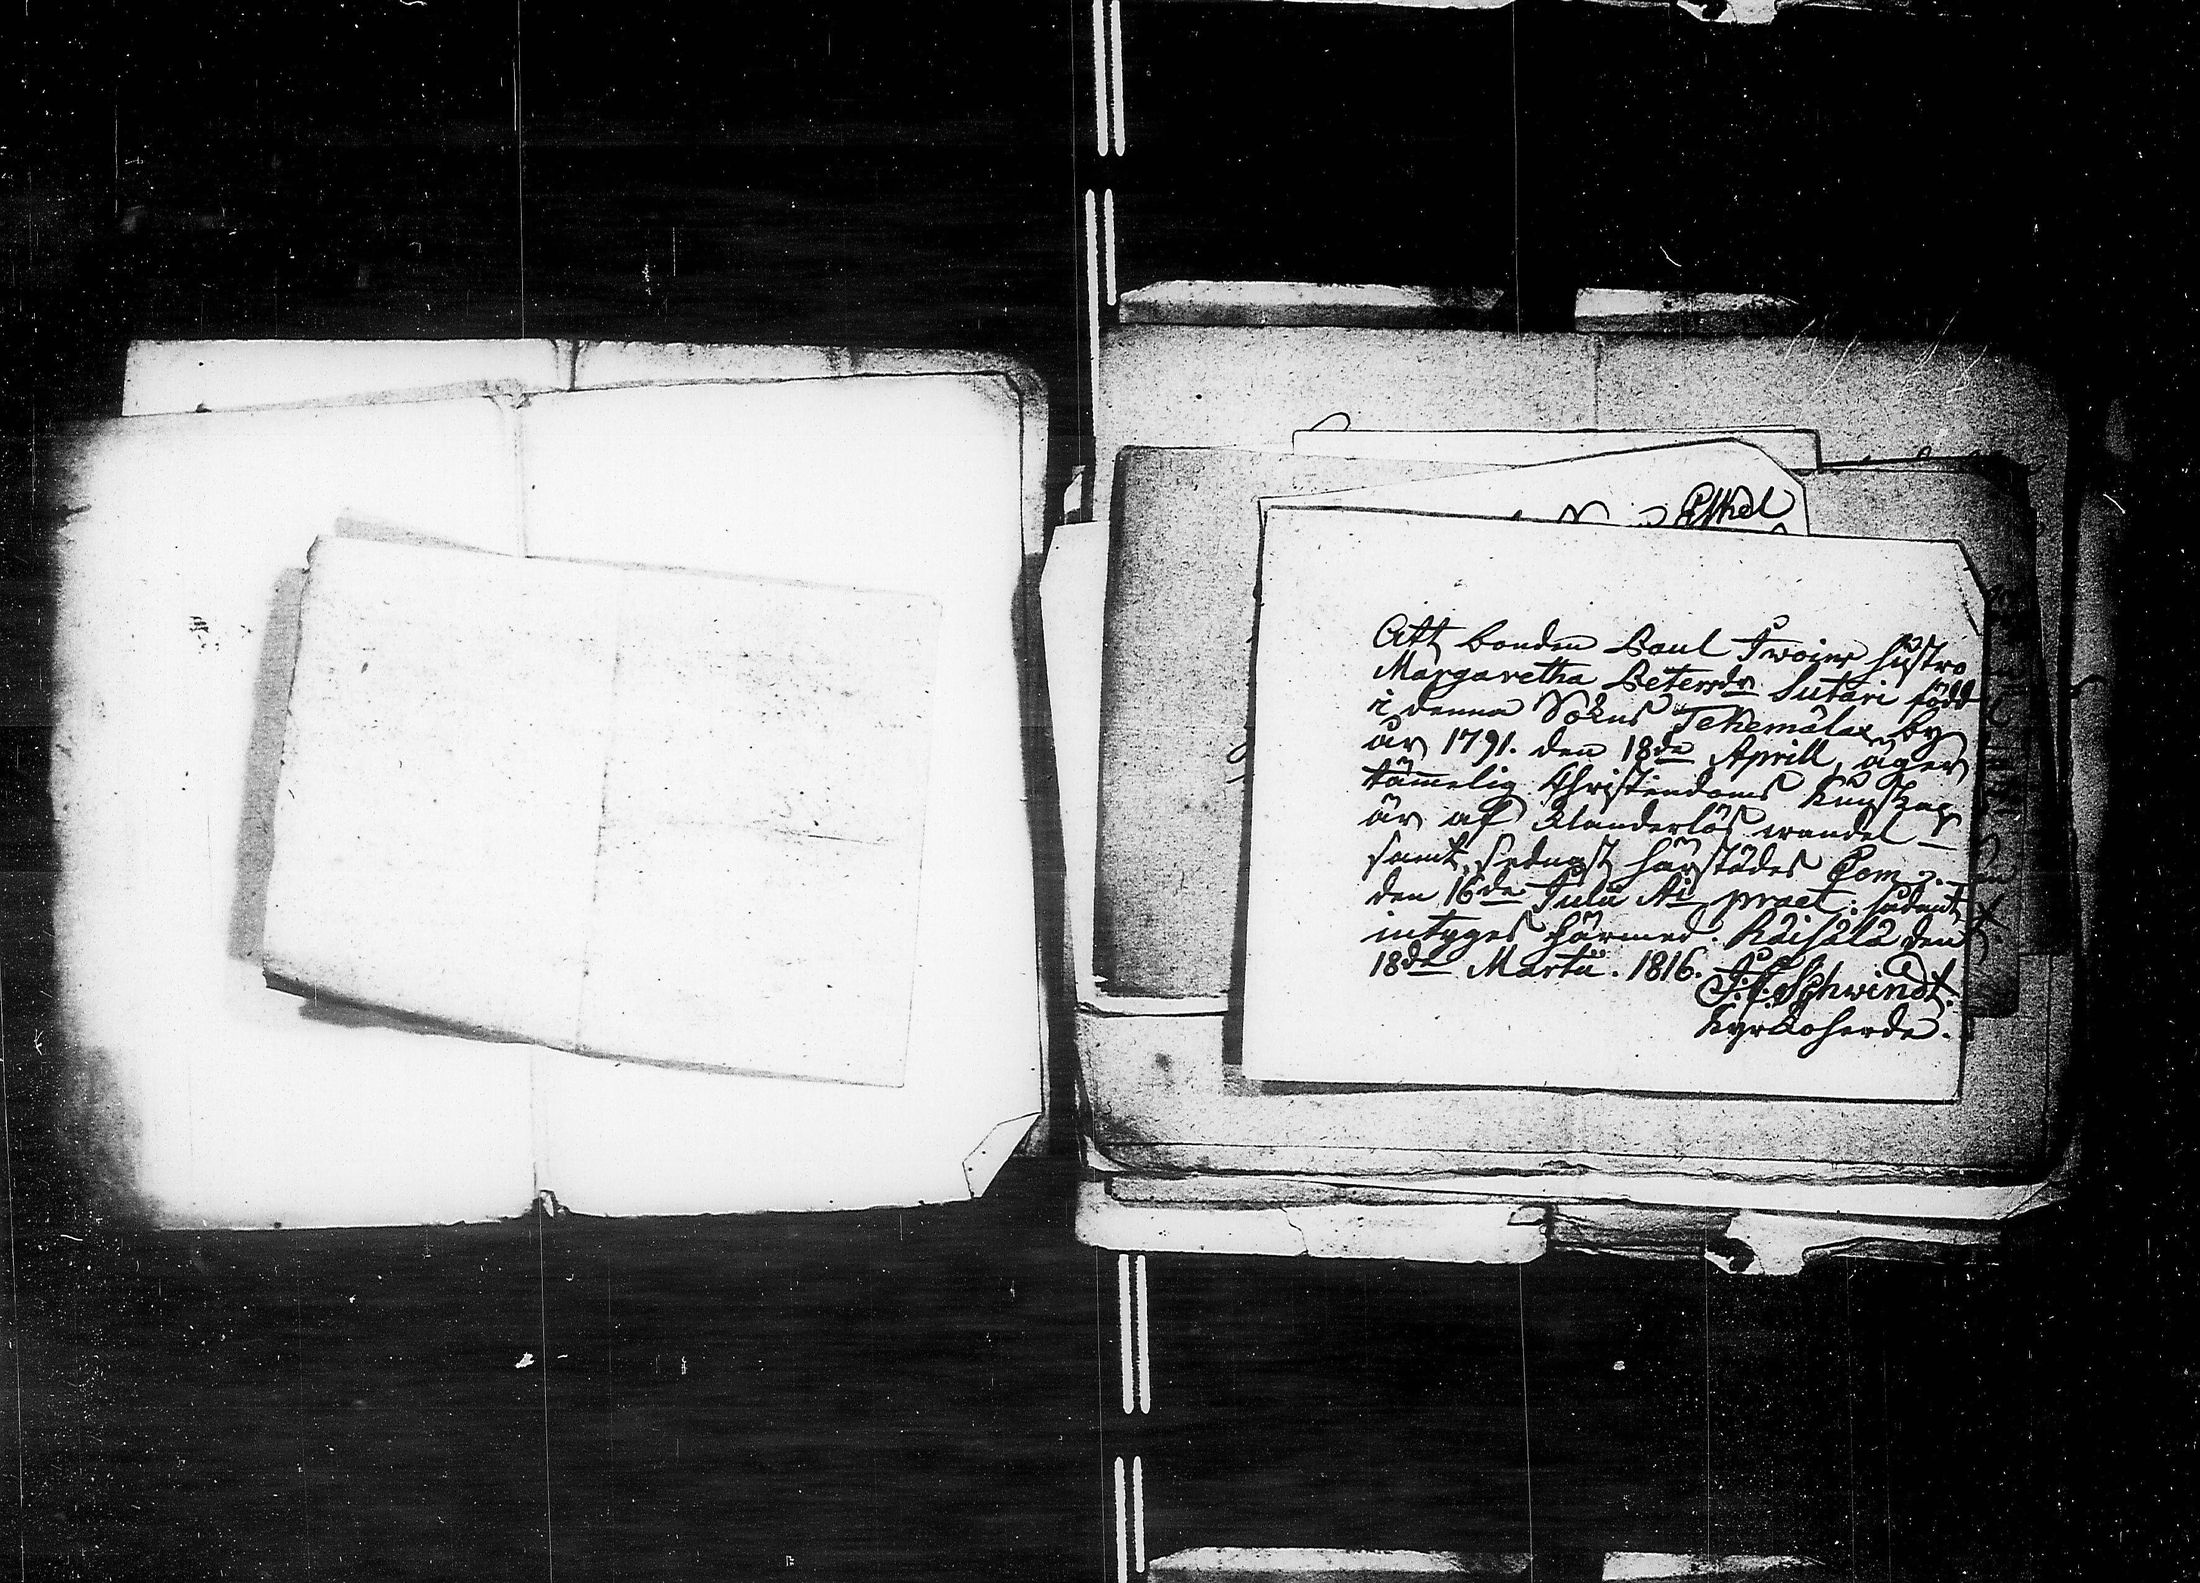 Att bonden Paul Twoins hustro
Margaretha Petersdr Sutari född
i denna Sokns Tehemälax by
år 1791. den 18de Aprill, äger
tämmelig Christendoms kunskap
är af klanderlös wandel –
samt sednast härstädes Com.
den 16de Julii Ai praet: sådant
intyges härmed. Räisälä den
18de Martii. 1816.
J. F. Schwindt.
Kyrkoherde.